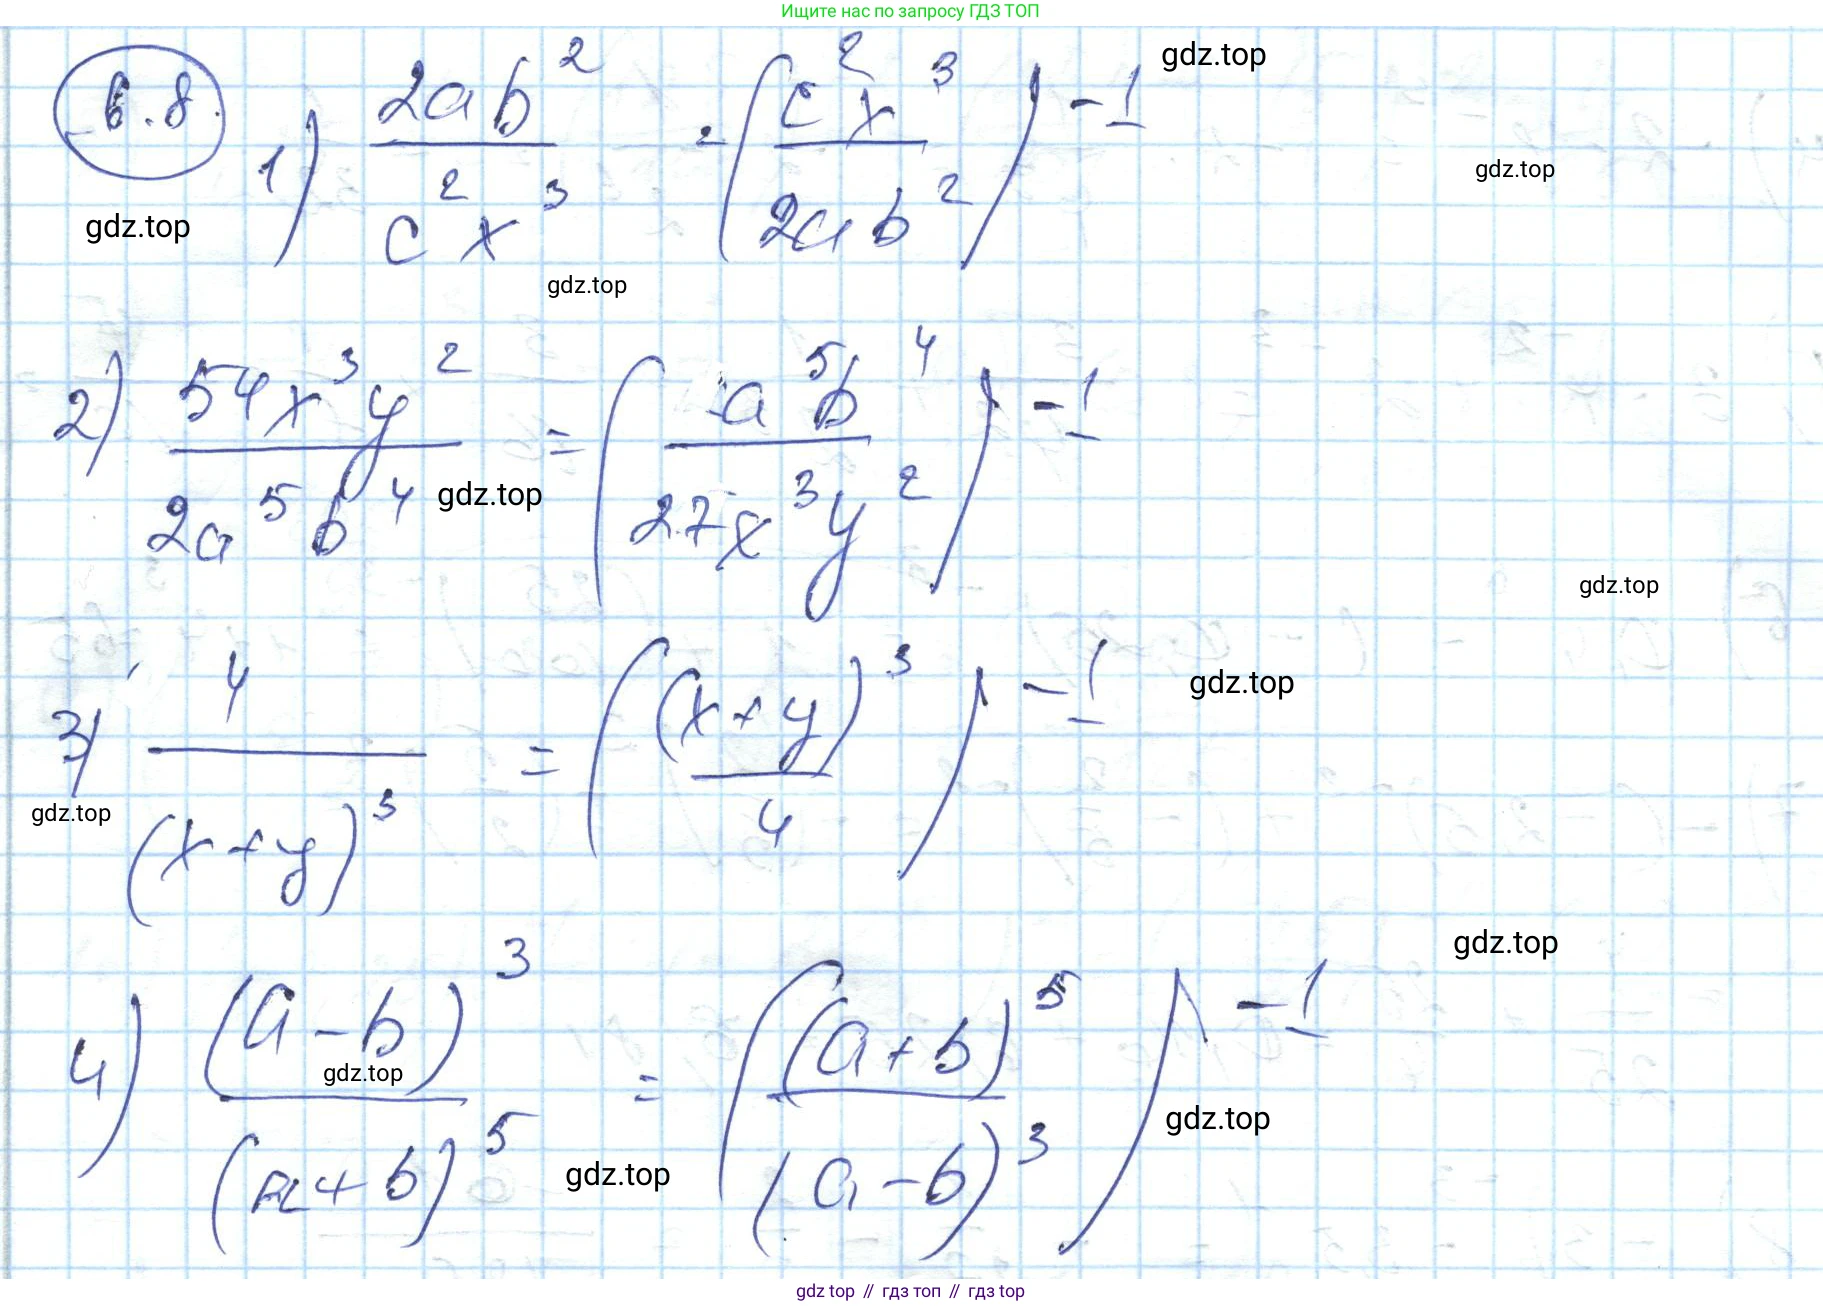 Ищите нас по запросу ГДЗ ТОП
6.8. 1) \frac{2ab^2}{c^2x^3} = \left(\frac{c^2x^3}{2ab^2}\right)^{-1} gdz.top
gdz.top
gdz.top
gdz.top
2) \frac{54x^3y^2}{2a^5b^4} = \left(\frac{a^5b^4}{27x^3y^2}\right)^{-1}
gdz.top
gdz.top
3) \frac{4}{(x+y)^3} = \left(\frac{(x+y)^3}{4}\right)^{-1} gdz.top
gdz.top
gdz.top
4) \frac{(a-b)^3}{(a+b)^5} = \left(\frac{(a+b)^5}{(a-b)^3}\right)^{-1}
gdz.top
gdz.top
gdz.top
gdz top // гдз топ // гдз top